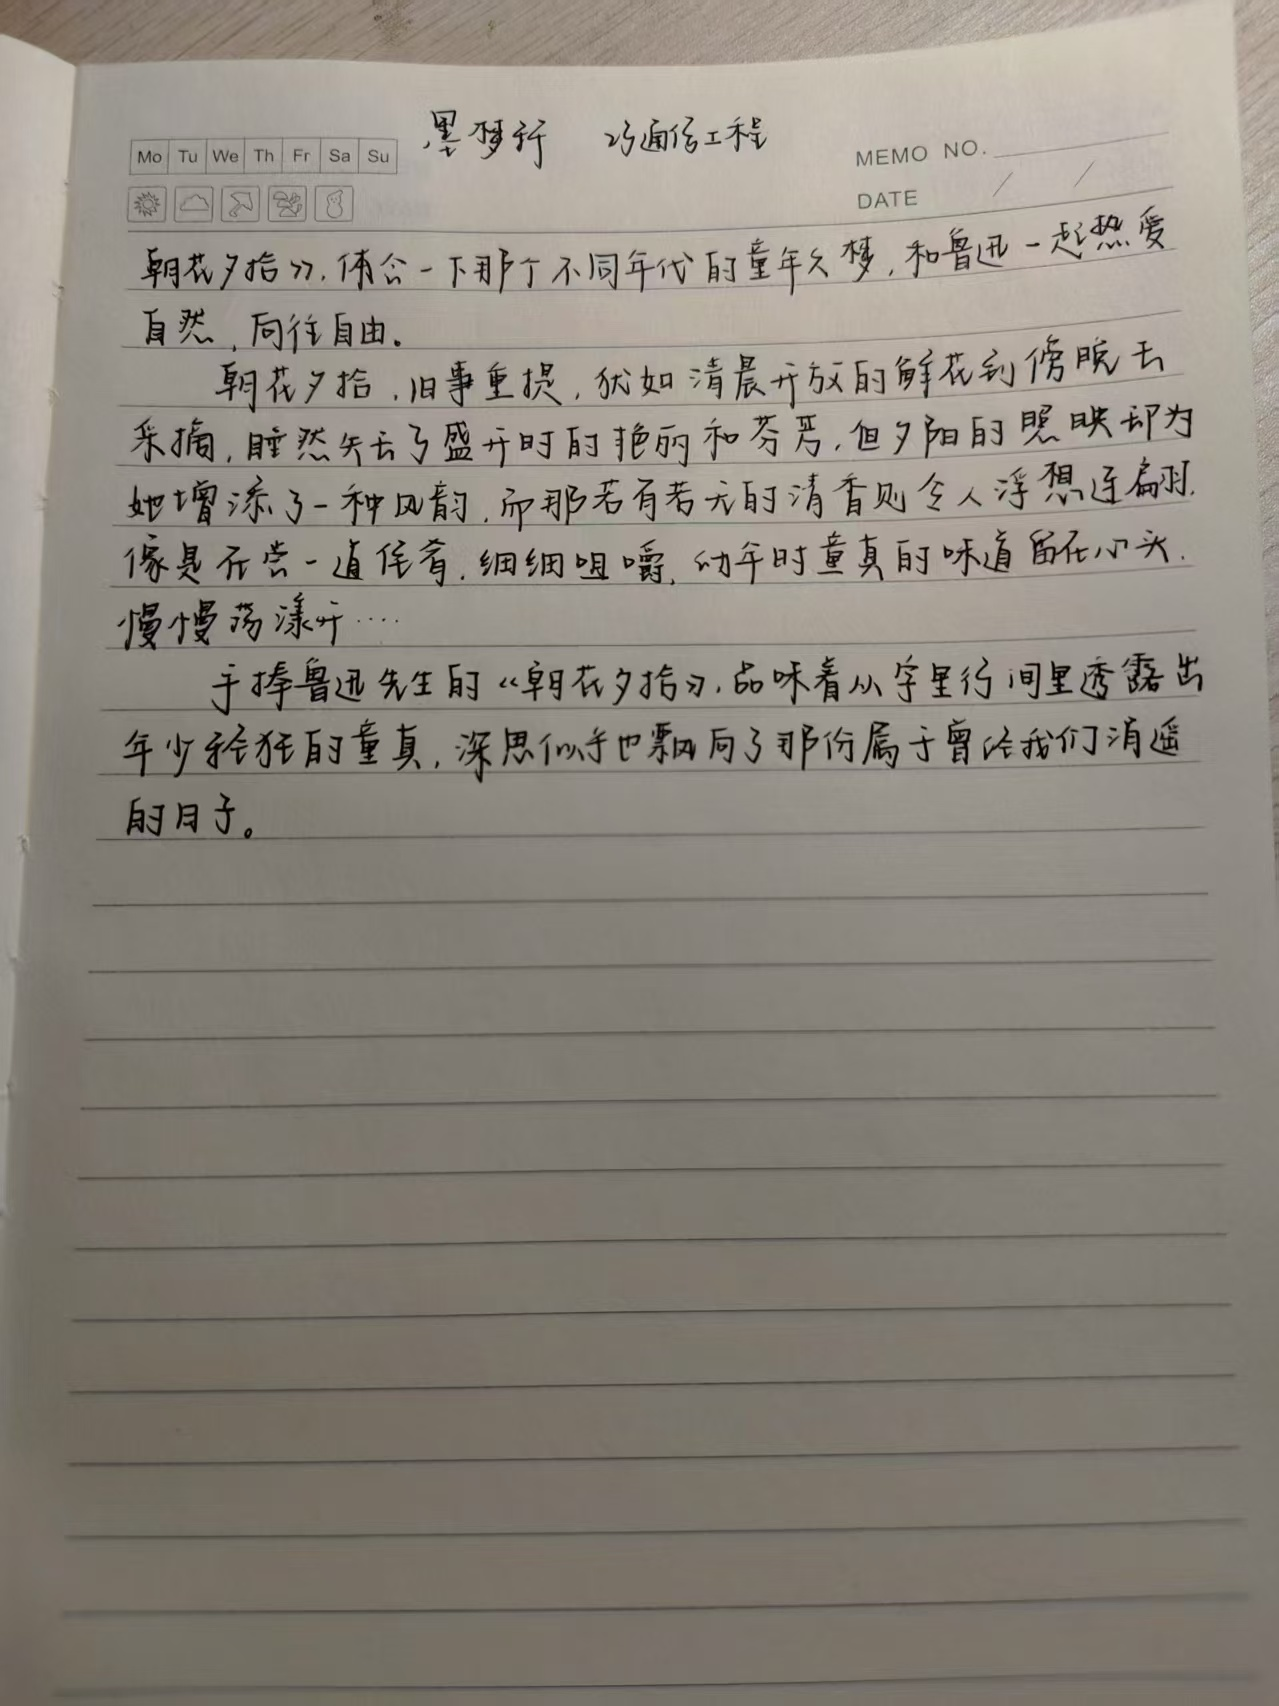 墨梦行 23通信工程
Mo Tu We Th Fr Sa Su
MEMO NO.
DATE / /
朝花夕拾》,体会一下那个不同年代的童年久梦,和鲁迅一起热爱
自然,向往自由。
朝花夕拾,旧事重提,犹如清晨开放的鲜花到傍晚去
采摘,虽然失去了盛开时的艳丽和芬芳,但夕阳的照映却为
她增添了一种风韵,而那若有若无的清香则令人浮想连翩,
像是在尝一道佳肴,细细咀嚼,幼年时童真的味道留在心头,
慢慢荡漾开····
手捧鲁迅先生的《朝花夕拾》,品味着从字里行间里透露出
年少轻狂的童真,深思似乎也飘向了那份属于曾经我们逍遥
的日子。